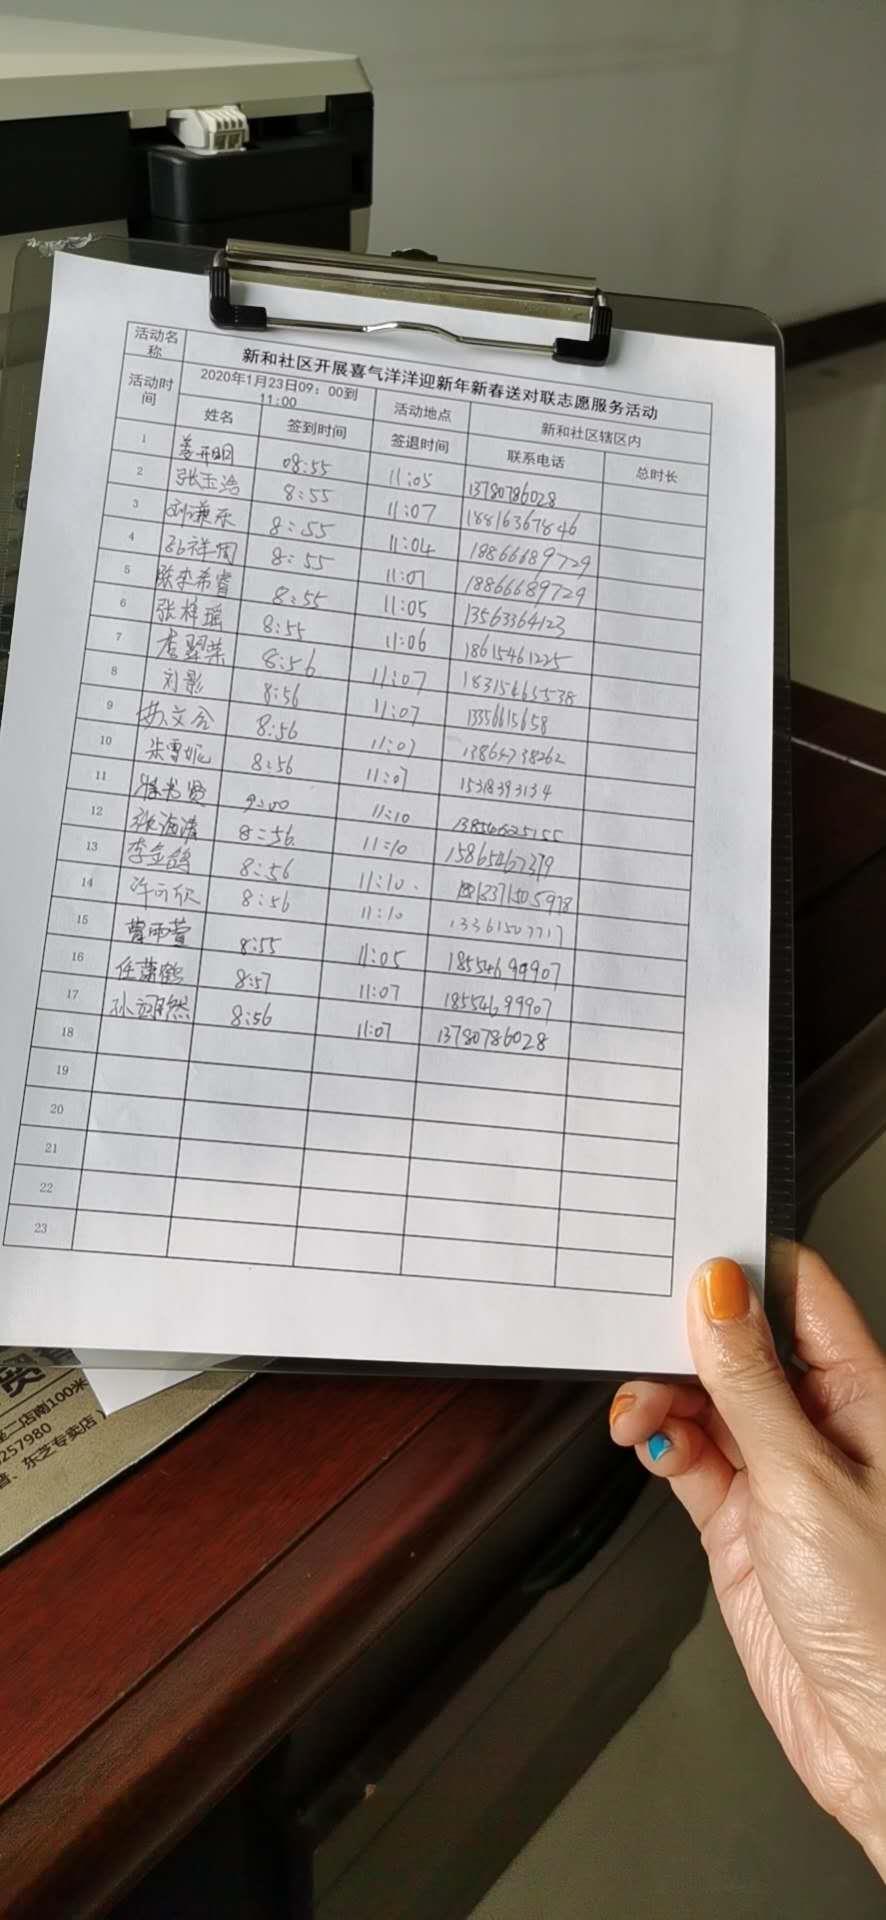 活动名称 新和社区开展喜气洋洋迎新年新春送对联志愿服务活动
活动时间 2020年1月23日09:00到11:00 活动地点 新和社区辖区内
姓名 签到时间 签退时间 联系电话 总时长
1 姜开明 08:55 11:05 13780786028
2 张玉洽 8:55 11:07 18816367846
3 刘谦乐 8:55 11:04 18866689729
4 祥周 8:55 11:07 18866689729
5 陈李希睿 8:55 11:05 13563364123
6 张梓瑶 8:55 11:06 18615461225
7 李翠荣 8:56 11:07 18315465538
8 刘影 8:56 11:07 13356615658
9 苏文会 8:56 11:07 13864738262
10 朱雪妮 8:56 11:07 15318393134
11 书贤 9:00 11:10 13854625155
12 张海清 8:56 11:10 15865462379
13 李金鸽 8:56 11:10 18371505978
14 许可欣 8:56 11:10 13361507717
15 曹雨萱 8:55 11:05 18554699907
16 任蒲鹤 8:57 11:07 18554699907
17 孙翊然 8:56 11:07 13780786028
18
19
20
21
22
23
二店南100米
257980
普、东芝专卖店）